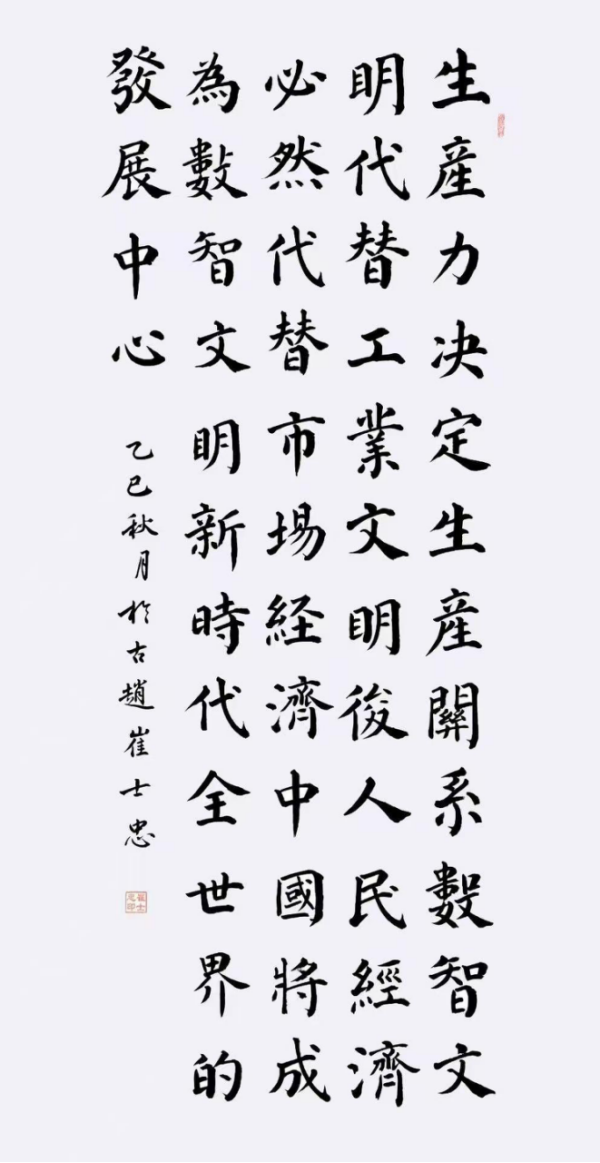 生産力决定生産關系數智文
明代替工業文明後人民經濟
必然代替市場経濟中國將成
為數智文明新時代全世界的
發展中心
乙巳秋月於古趙崔士忠